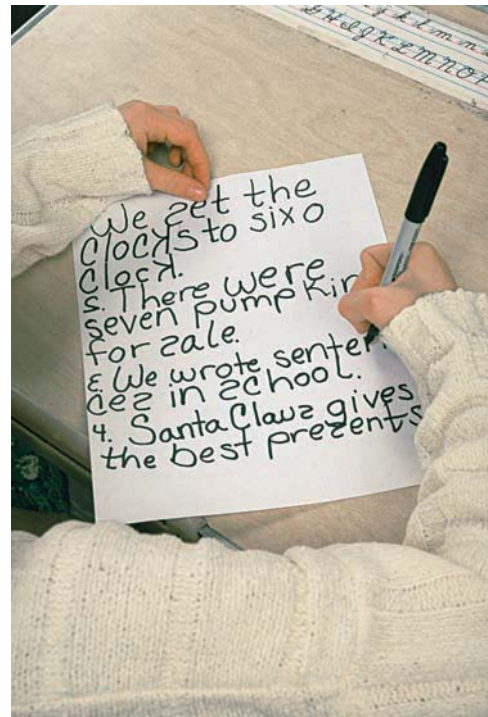 k l m n
G H I J K L M N O P
We ƨet the
Clocʞs to six o
Clocʞ.
s. There were
seven pumpkin
for ƨale.
Ɛ. We wrote senten
ceƨ in ƨchool.
4. Santa Clauƨ gives
the best preƨents